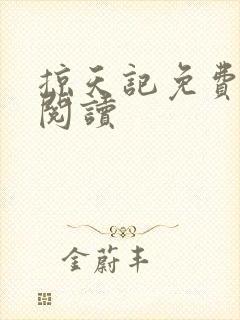 掠天記免費
閱讀
金蔚丰